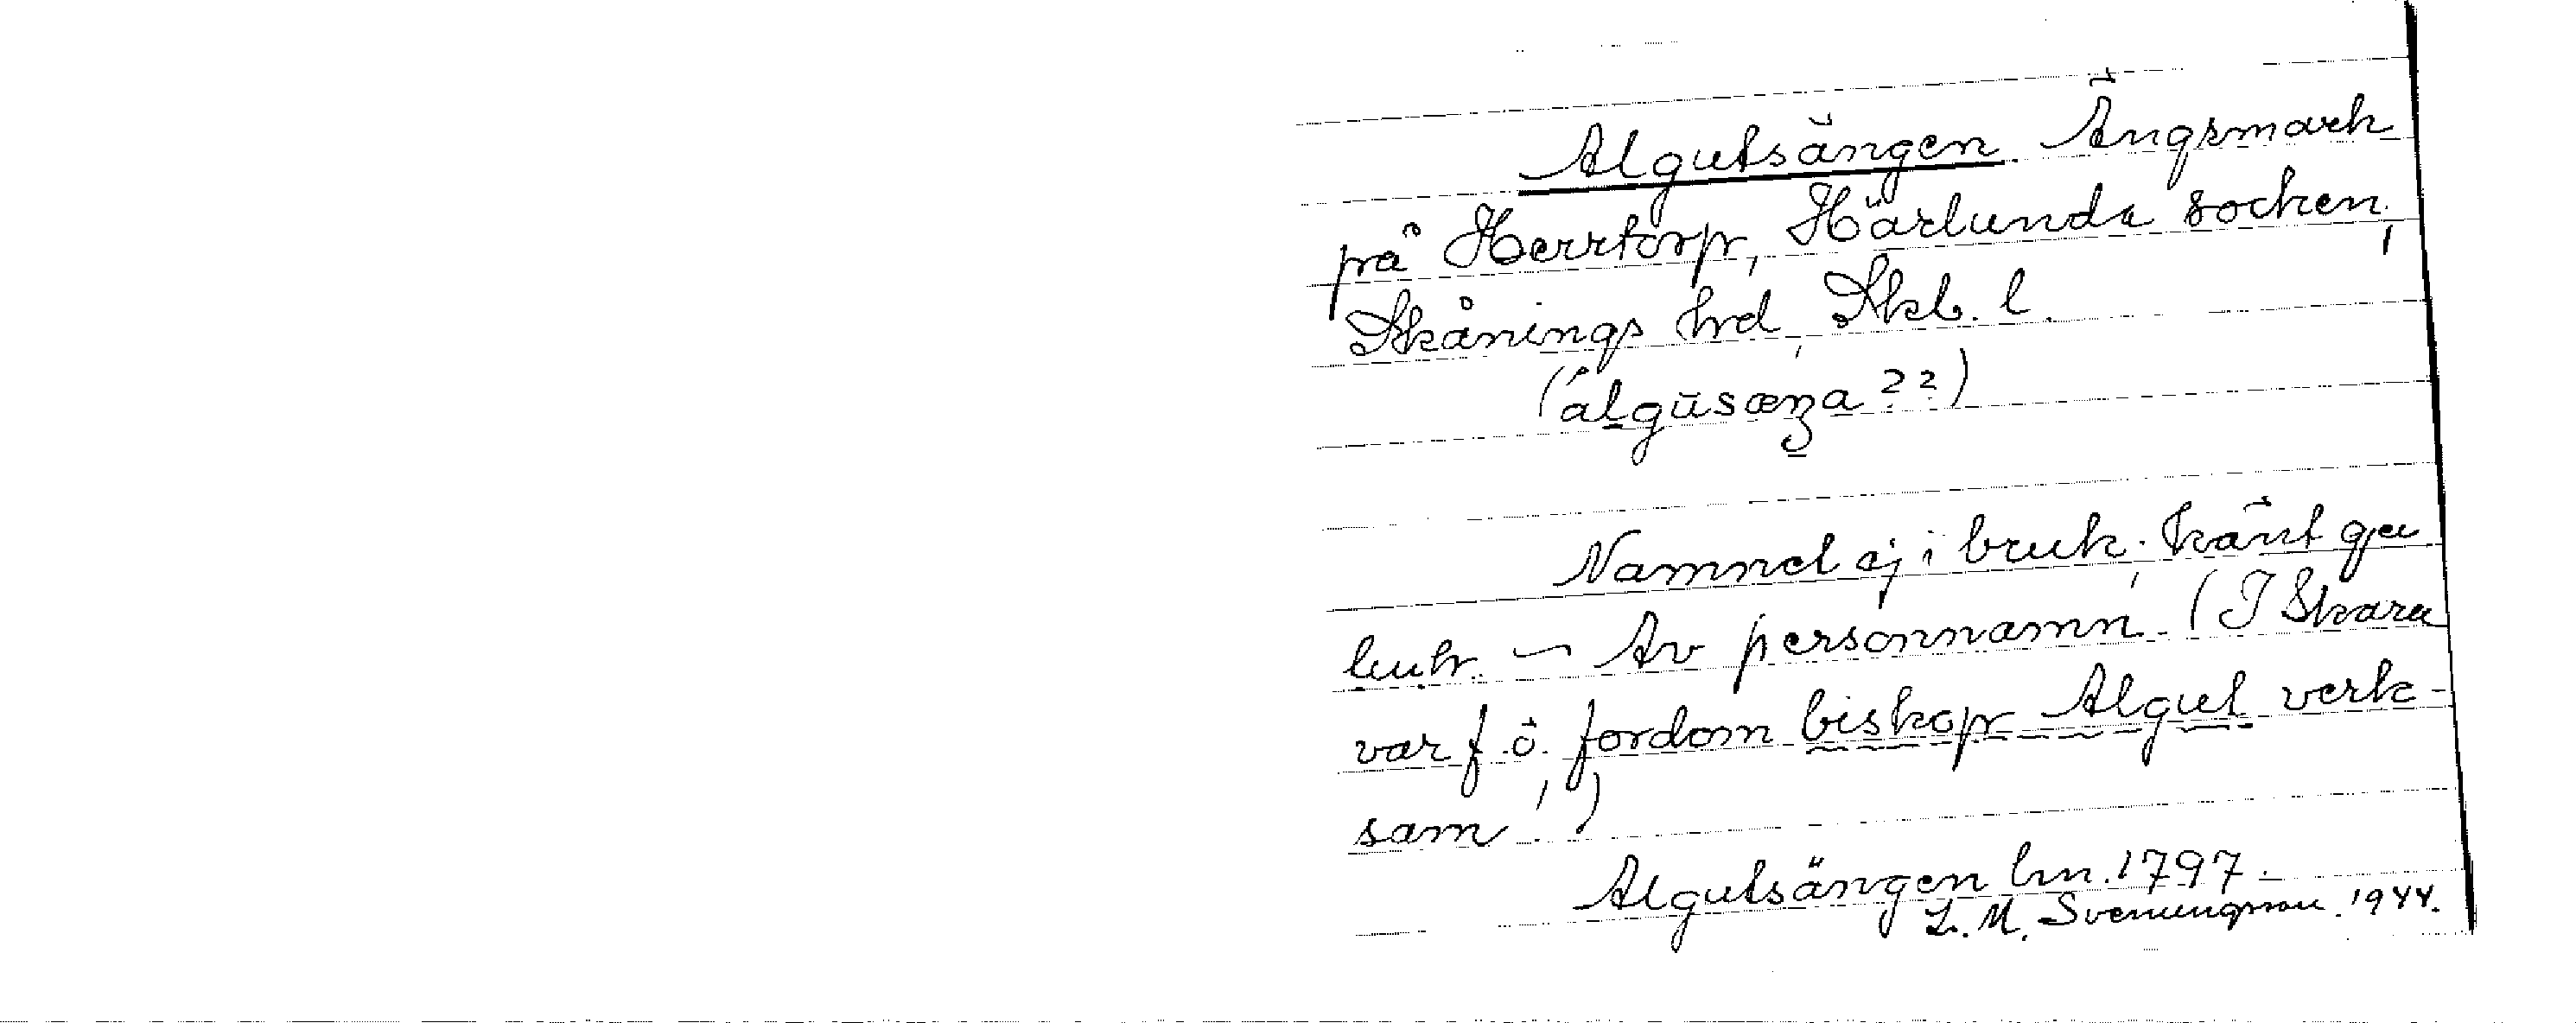 Algutsängen. Ängsmark
på Herrtorp, Härlunda socken,
Skånings hrd, Skb. l.
(álgūsæŋa??)
Namnet ej i bruk; känt gm
lmh. – Av personnamn. (I Skara
var f. ö. fordom biskop Algut verk-
sam!)
Algutsängen lm. 1797.
L. M. Svenungsson. 1944.